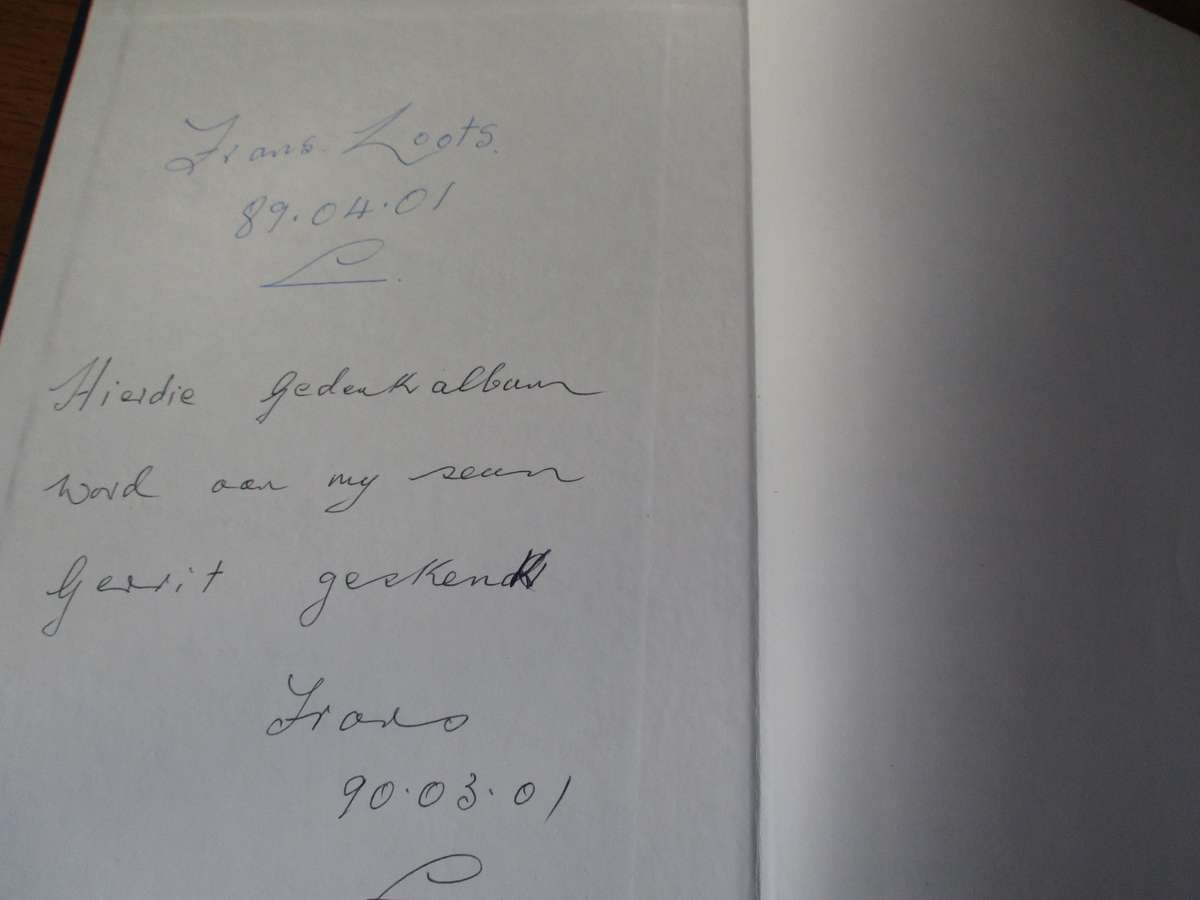 Frans Loots.
89.04.01
L.
Hierdie Gedenkalbum
word aan my seun
Gerrit geskenk
Frans
90.03.01